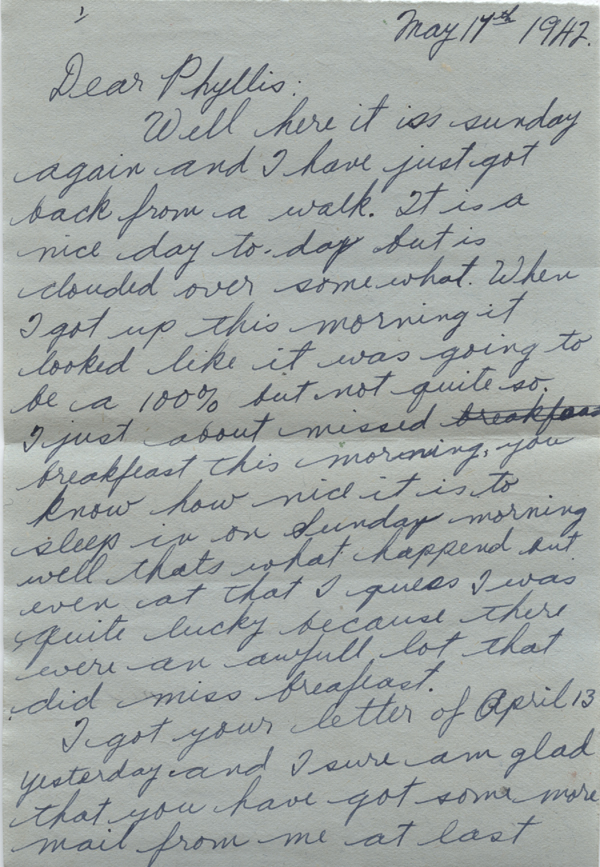 1
May 17th 1942.
Dear Phyllis:
Well here it iss sunday
again and I have just got
back from a walk. It is a
nice day to-day but is
clouded over somewhat. When
I got up this morning it
looked like it was going to
be a 100% but not quite so.
I just about missed breakfeas
breakfeast this morning, you
know how nice it is to
sleep in on Sunday morning
well thats what happend but
even at that I guess I was
quite lucky because there
were an awfull lot that
did miss breafeast.
I got your letter of April 13
yesterday and I sure am glad
that you have got some more
mail from me at last